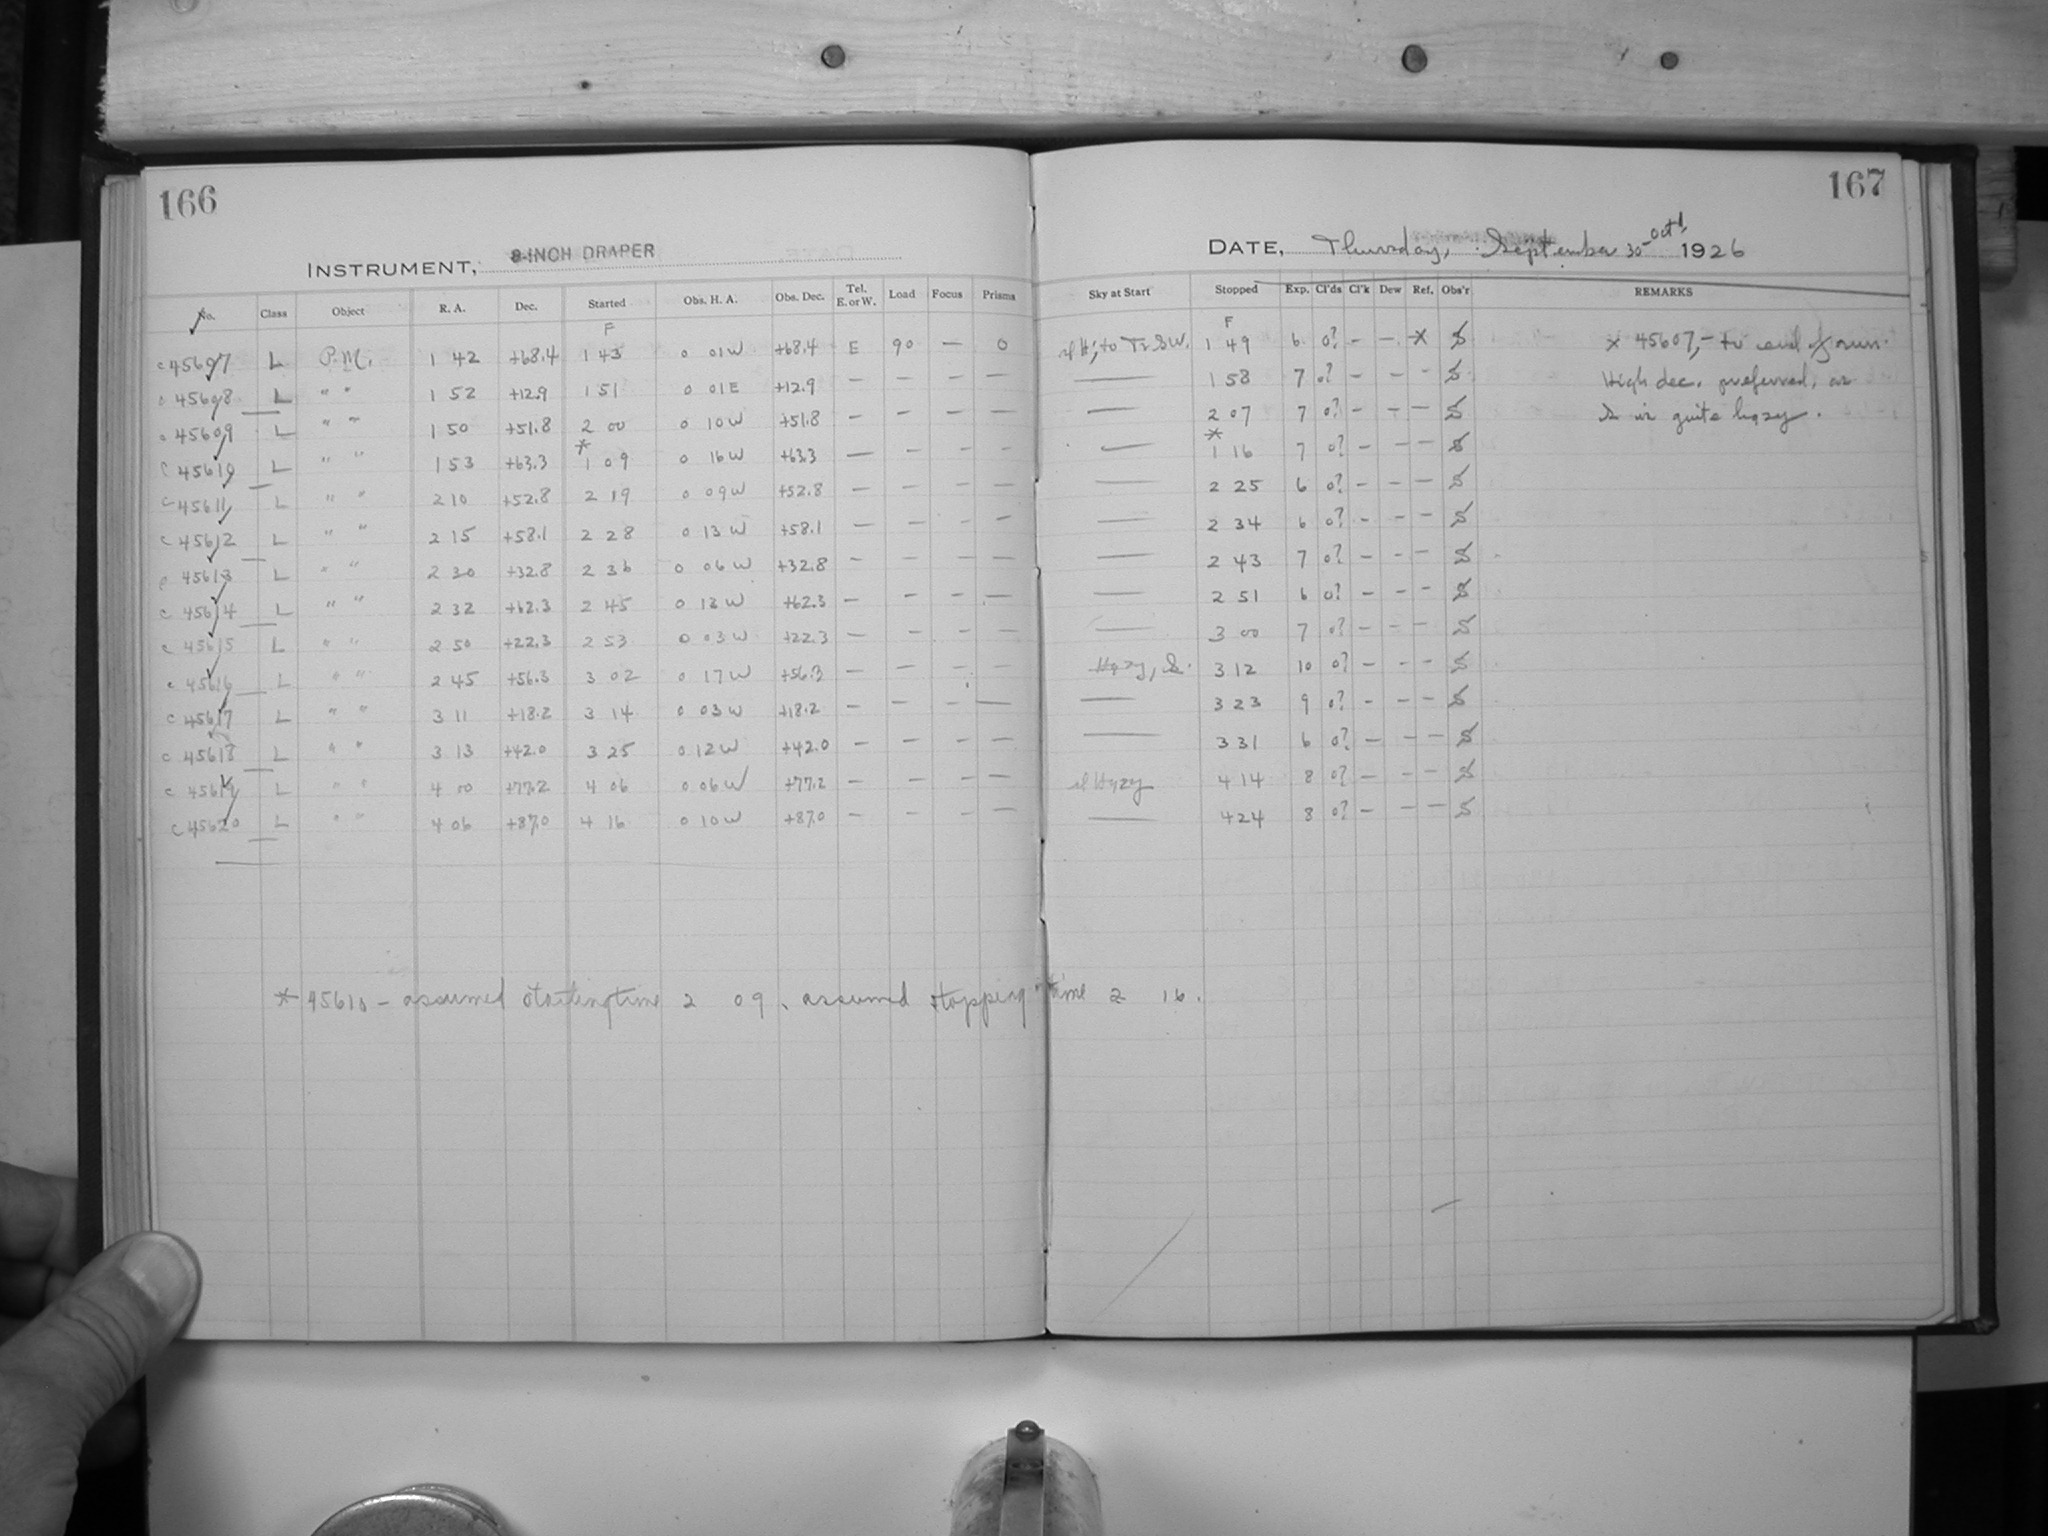 166
167
INSTRUMENT, 8-INCH DRAPER
DATE, Thursday, September 30 - Oct 1 1926
No. Class Object R. A. Dec. Started Obs. H. A. Obs. Dec. Tel. E. or W. Load Focus Prisms Sky at Start Stopped Exp. Cl'ds Cl'k Dew Ref. Obs'r REMARKS
F F
c 45607 L P.M. 1 42 +68.4 1 43 0 01 W +68.4 E 90 — 0 1 49 6 0? — — * S * 45607,- to end of run.
c 45608 L " " 1 52 +12.9 1 51 0 01 E +12.9 — — — — — 1 58 7 0? — — — S High dec. preferred, as
c 45609 L " " 1 50 +51.8 2 00 0 10 W +51.8 — — — — — 2 07 7 0? — — — S S is quite hazy.
* *
c 45610 L " " 1 53 +63.3 1 09 0 16 W +63.3 — — — — — 1 16 7 0? — — — S
c 45611 L " " 2 10 +52.8 2 19 0 09 W +52.8 — — — — — 2 25 6 0? — — — S
c 45612 L " " 2 15 +58.1 2 28 0 13 W +58.1 — — — — — 2 34 6 0? — — — S
c 45613 L " " 2 30 +32.8 2 36 0 06 W +32.8 — — — — — 2 43 7 0? — — — S
c 45614 L " " 2 32 +62.3 2 45 0 13 W +62.3 — — — — — 2 51 6 0? — — — S
c 45615 L " " 2 50 +22.3 2 53 0 03 W +22.3 — — — — — 3 00 7 0? — — — S
c 45616 L " " 2 45 +56.3 3 02 0 17 W +56.3 — — — — Hazy, S. 3 12 10 0? — — — S
c 45617 L " " 3 11 +18.2 3 14 0 03 W +18.2 — — — — — 3 23 9 0? — — — S
c 45618 L " " 3 13 +42.0 3 25 0 12 W +42.0 — — — — — 3 31 6 0? — — — S
c 45619 L " " 4 00 +77.2 4 06 0 06 W +77.2 — — — — sl Hazy 4 14 8 0? — — — S
c 45620 L " " 4 06 +87.0 4 16 0 10 W +87.0 — — — — — 4 24 8 0? — — — S
* 45610 - assumed starting time 2 09, assumed stopping time 2 16.